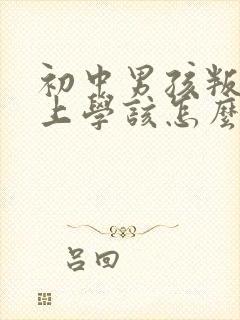 初中男孩叛
上學該怎麼
呂回